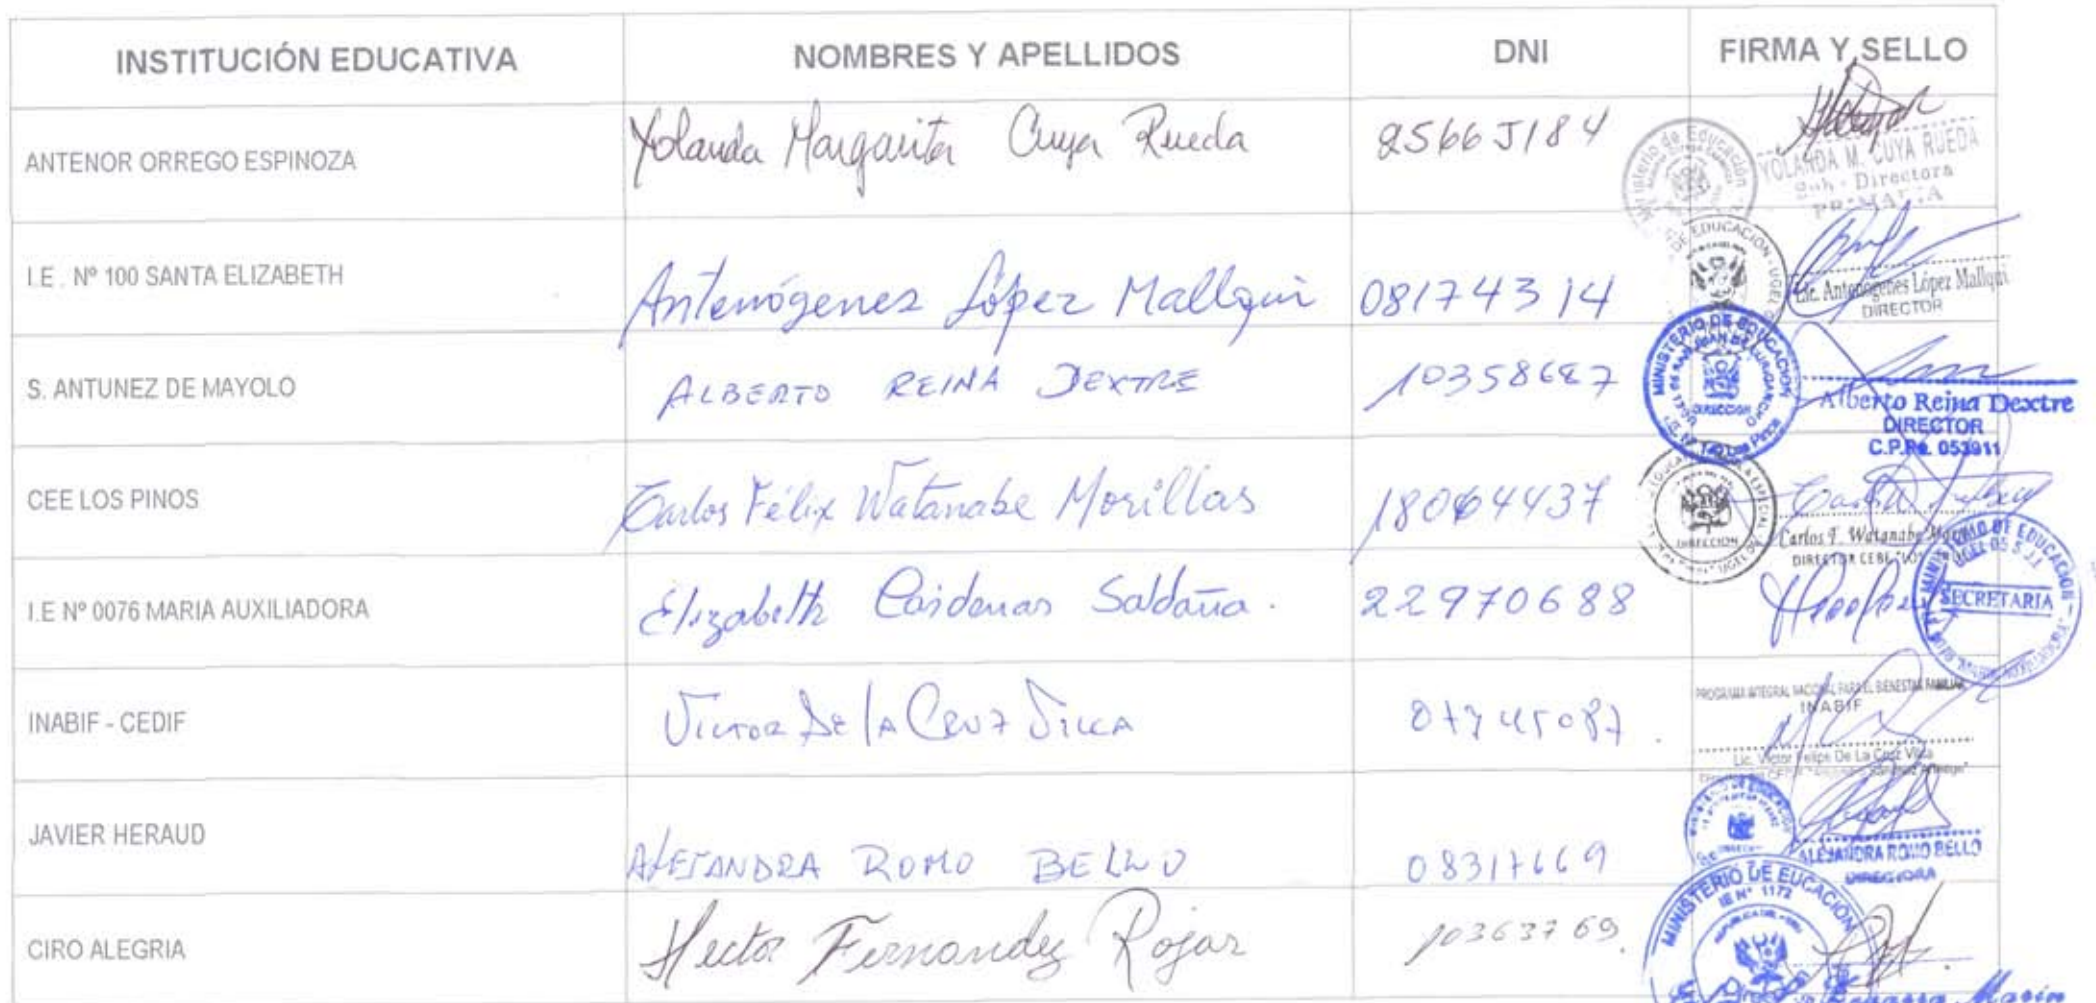 INSTITUCIÓN EDUCATIVA NOMBRES Y APELLIDOS DNI FIRMA Y SELLO
ANTENOR ORREGO ESPINOZA Yolanda Margarita Cuya Rueda 25665184
Ministerio de Educación
YOLANDA M. CUYA RUEDA
Sub - Directora
PRIMARIA
I.E. Nº 100 SANTA ELIZABETH Antenógenes López Mallqui 08174314
DE EDUCACION UGEL
Lic. Antenogenes López Mallqui
DIRECTOR
S. ANTUNEZ DE MAYOLO ALBERTO REINA DEXTRE 10358687
MINISTERIO DE EDUCACION
DIRECCION
Alberto Reina Dextre
DIRECTOR
C.P.Pe. 053911
CEE LOS PINOS Carlos Félix Watanabe Morillas 18064437
DIRECCION
Carlos F. Watanabe
DIRECTOR CEBE
I.E Nº 0076 MARIA AUXILIADORA Elizabeth Cárdenas Saldaña. 22970688
MINISTERIO DE EDUCACION
UGEL 05 S.J.L
SECRETARIA
INABIF - CEDIF Victor De la Cruz Vilca
PROGRAMA INTEGRAL NACIONAL PARA EL BIENESTAR FAMILIAR
INABIF
Lic. Victor Felipe De La Cruz Vilca
JAVIER HERAUD ALEJANDRA ROMO BELLO 08317669
ALEJANDRA ROMO BELLO
DIRECTORA
CIRO ALEGRIA Hector Fernandez Rojas 10363769.
MINISTERIO DE EUCACION
IE Nº 1172